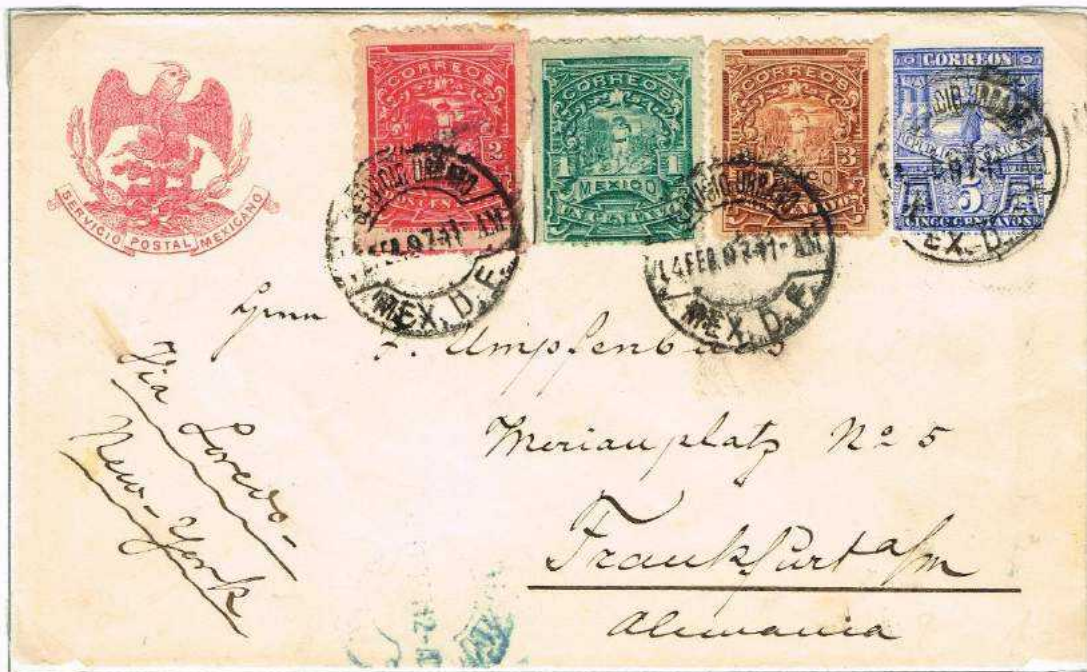 SERVICIO POSTAL MEXICANO
CORREOS
2
CORREOS
1 1
MEXICO
UN CENTAVO
CORREOS
3
MEXICO
CORREOS
5
CINCO CENTAVOS
SERVICIO URBANO
FEB. 97-11-AM
MEX. D.F.
SERVICIO URBANO
4 FEB. 97-11-AM
MEX. D.F.
MEX. D.F.
Herrn
F. Umpfenbach
Merianplatz Nº 5
Frankfurt a/m
Alemania
Via Loredo-
New-York